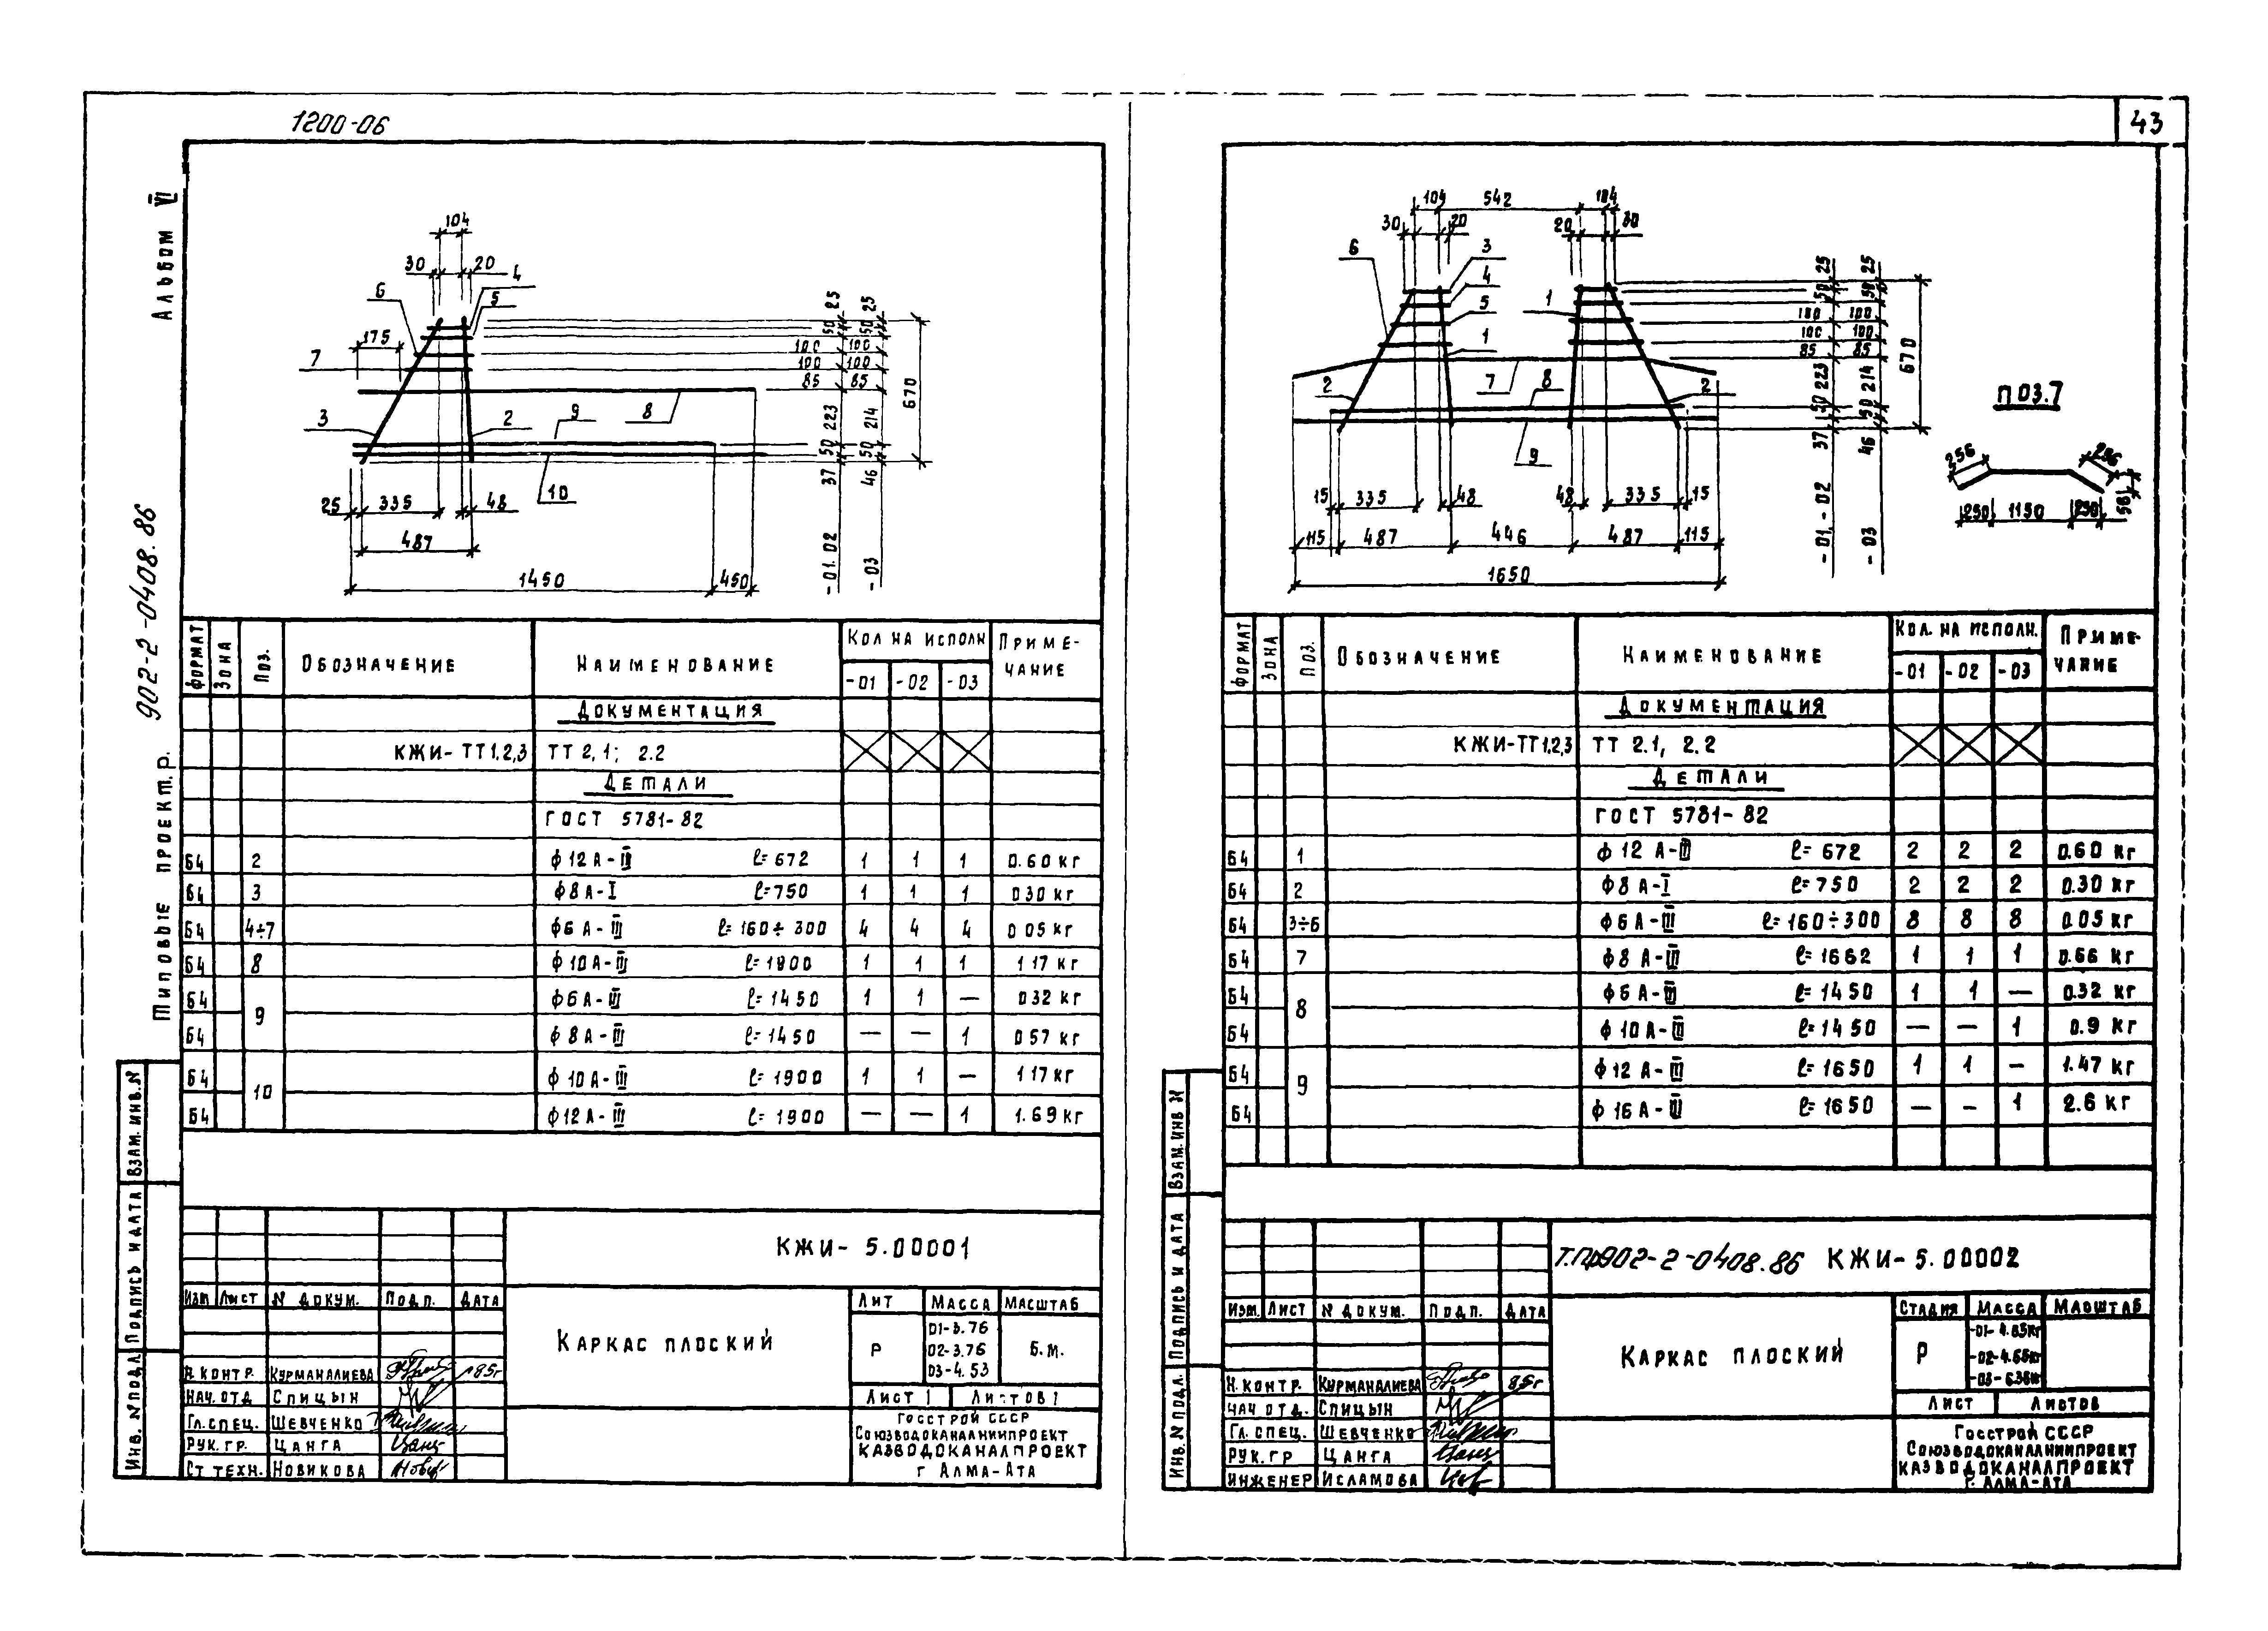 1200-06
43
Альбом VI
Типовые проект.р. 902-2-0408.86
104
30 20
4
5
6
175
7
3
2
9
8
10
25 335 48
487
1450 450
25 50 100 100 85 223 50 37 -01.02
25 50 100 100 85 214 50 46 -03
670
Формат Зона Поз. Обозначение Наименование Кол на исполн Приме-
чание
-01 -02 -03
Документация
КЖИ-ТТ1.2,3 ТТ 2,1; 2.2
Детали
ГОСТ 5781-82
Б4 2 ф12А-III ℓ=672 1 1 1 0.60 кг
Б4 3 ф8А-I ℓ=750 1 1 1 030 кг
Б4 4÷7 ф6А-III ℓ=160÷300 4 4 4 005 кг
Б4 8 ф10А-III ℓ=1900 1 1 1 117 кг
Б4 9 ф6А-III ℓ=1450 1 1 — 032 кг
Б4 ф8А-III ℓ=1450 — — 1 057 кг
Б4 10 ф10А-III ℓ=1900 1 1 — 117 кг
Б4 ф12А-III ℓ=1900 — — 1 1.69 кг
Инв. N подл. Подпись и дата Взам. инв. N
КЖИ-5.00001
Изм Лист N докум. Подп. Дата
Каркас плоский
Лит Масса Масштаб
Р
01-3.76
02-3.76
03-4.53
Б.М.
Лист 1 Листов 1
Н.контр. Курманалиева 85г
Нач. отд Спицын
Гл. спец. Шевченко
Рук. гр. Цанга
Ст техн. Новикова
Госстрой СССР
Союзводоканалниипроект
Казводоканалпроект
г Алма-Ата
104 542 104
30 20 20 30
6
3
4
5
1
1
2
7
8
2
9
15 335 48 48 335 15
115 487 446 487 115
1650
25 50 100 100 85 223 50 37 -01,-02
25 50 100 100 85 214 50 46 -03
670
Поз.7
256 256
250 1150 250 56
Формат Зона Поз. Обозначение Наименование Кол. на исполн. Приме-
чание
-01 -02 -03
Документация
КЖИ-ТТ1.2,3 ТТ 2.1, 2.2
Детали
ГОСТ 5781-82
Б4 1 ф12 А-III ℓ=672 2 2 2 0.60 кг
Б4 2 ф8 А-I ℓ=750 2 2 2 0.30 кг
Б4 3÷6 ф6А-III ℓ=160÷300 8 8 8 0.05 кг
Б4 7 ф8 А-III ℓ=1662 1 1 1 0.66 кг
Б4 8 ф6А-III ℓ=1450 1 1 — 0.32 кг
Б4 ф10А-III ℓ=1450 — — 1 0.9 кг
Б4 9 ф12 А-III ℓ=1650 1 1 — 1.47 кг
Б4 ф16А-III ℓ=1650 — — 1 2.6 кг
Инв. N подл. Подпись и дата Взам. инв N
Т.пр902-2-0408.86 КЖИ-5.00002
Изм. Лист N докум. Подп. Дата
Каркас плоский
Стадия Масса Масштаб
Р
-02-4.65кг
Лист Листов
Н.контр. Курманалиева 85г
Нач отд. Спицын
Гл. спец. Шевченко
Рук. гр Цанга
Инженер Исламова
Госстрой СССР
Союзводоканалниипроект
Казводоканалпроект
г. Алма-Ата